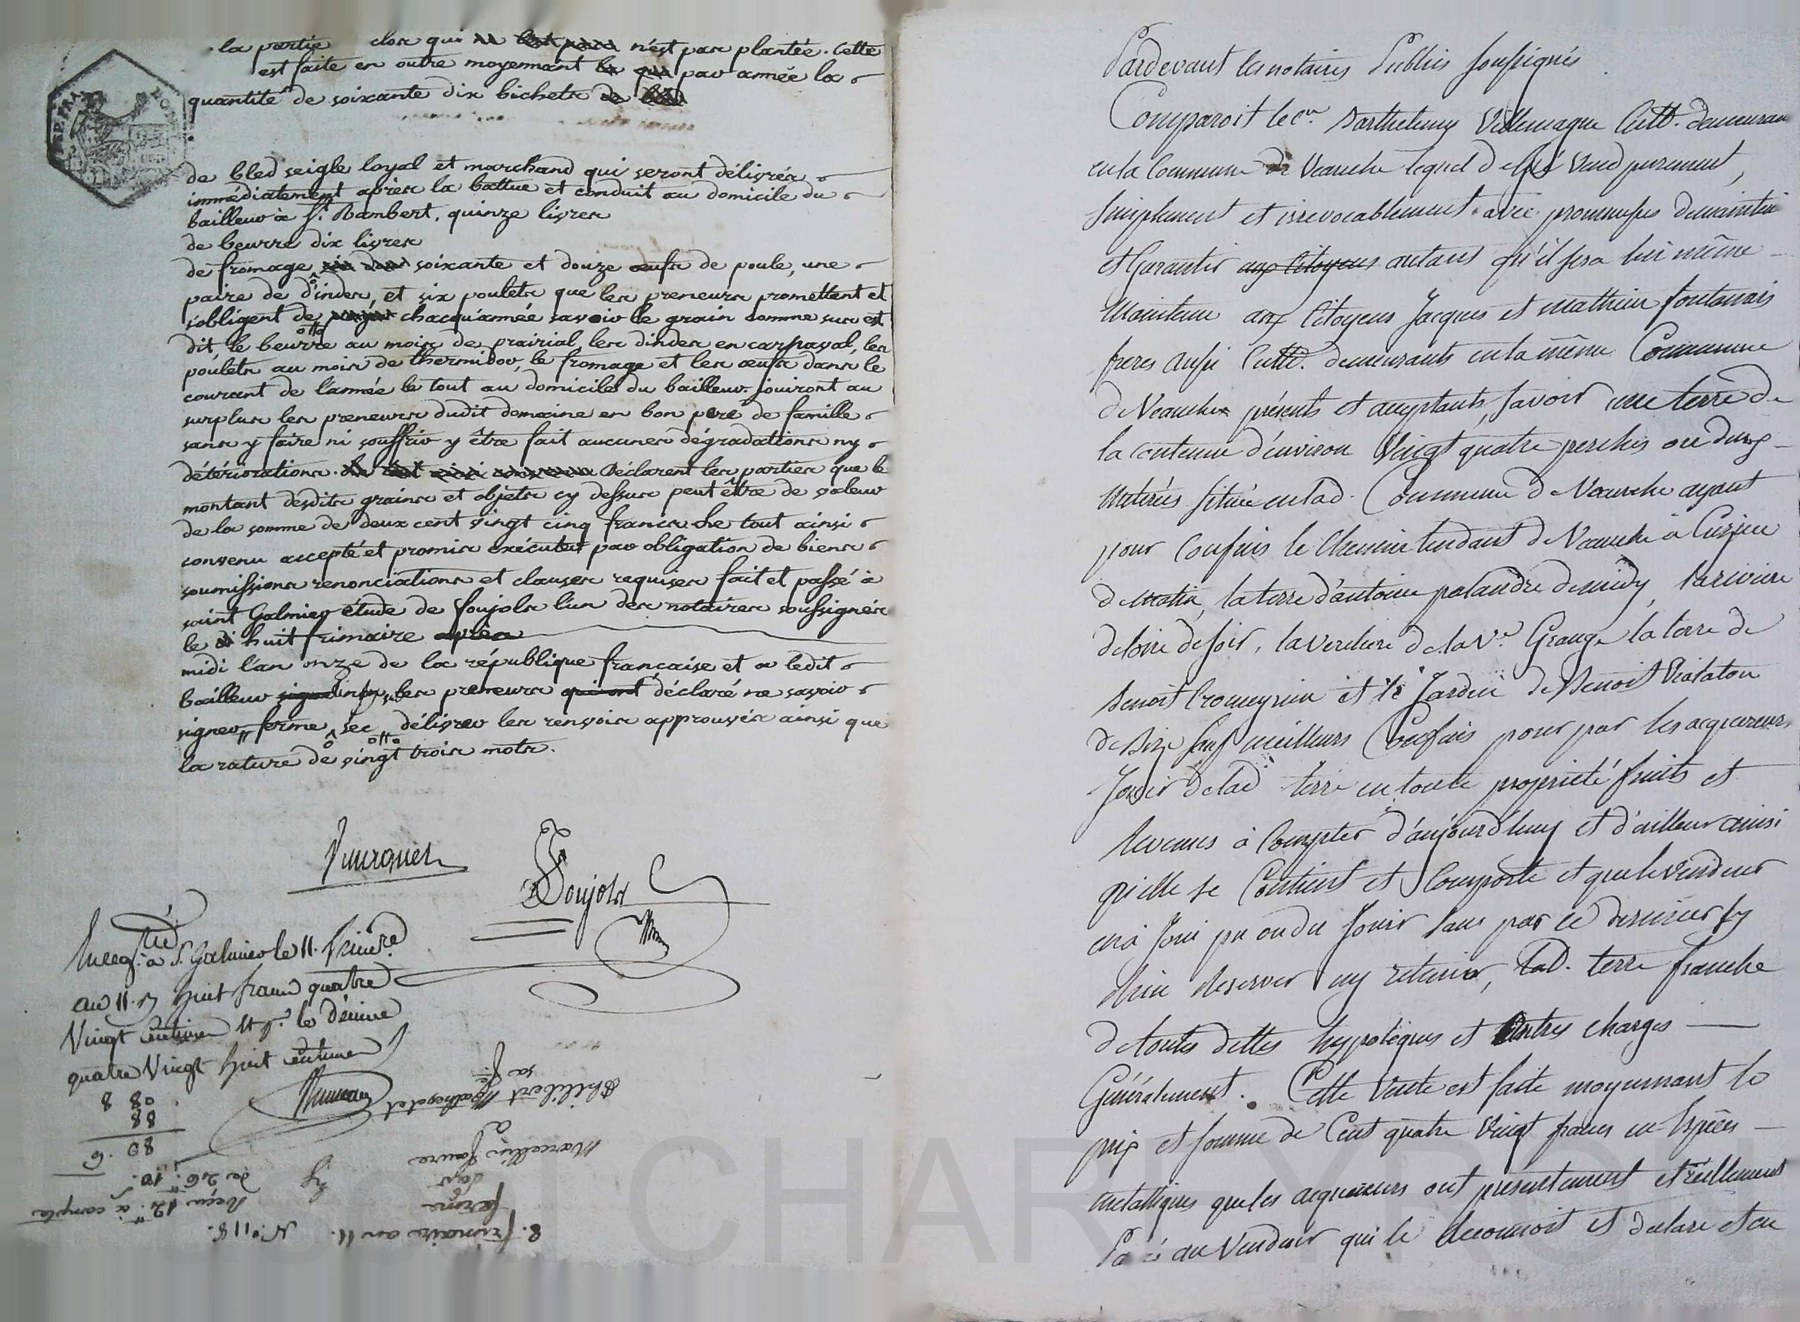 la partie close qui n'est pas plantée. Cette
est faite en outre moyennant par année la
quantité de soixante dix bichets
de bled seigle loyal et marchand qui seront délivrés
immédiatement après la battue et conduit au domicile du
bailleur à St. Rambert, quinze livres
de beurre dix livres
de fromage, soixante et douze œufs de poule, une
paire de dindes, et six poulets que les preneurs promettent et
s'obligent de chacqu'année savoir le grain comme sus est
dit, le beurre au mois de prairial les dindes en carnaval, les
poulets au mois de thermidor, le fromage et les œufs dans le
courant de l'année le tout au domicile du bailleur. jouiront au
surplus les preneurs dudit domaine en bon père de famille
sans y faire ni souffrir y être fait aucunes dégradations ny
détériorations. Déclarent les parties que le
montant desdits grains et objets cy dessus peut être de valeur
de la somme de deux cent vingt cinq francs. Le tout ainsi
convenu accepté et promis exécuter par obligation de biens
soumissions renonciations et clauses requises fait et passé à
saint Galmier étude de Soujols l'un des notaires soussignés
le huit frimaire après
midi l'an onze de la république française et a ledit
bailleur les preneurs déclaré ne savoir
signer ferme, sec délivrer les renvois approuvés ainsi que
la rature de vingt trois mots.
Soujols
Enreg.tré à S. Galmier le 11. frimre
an 11. huit francs quatre
Vingt centimes le décime
quatre Vingt huit centimes
8 80
88
9. 68
8. frimaire an 11. N.° 118.
ferme
pour
Marcellin Faure
à
Philibert et
sa f.e
Reçu 12 à compte
de 26. 10.
Pardevant les notaires Publics soussignés
Comparoit le cen. Barthelemy Villemagne Cult. demeurant
en la Commune de Veauche lequel de gré vend purement,
simplement et irrevocablement avec promesses de maintenir
et Garantir aux Citoyens autant qu'il sera lui même
Maintenu aux Citoyens Jacques et Mathieu fontanais
freres aussi Cult. demeurants en la même Commune
de Veauche présents et acceptants, savoir une terre de
la contenue d'environ Vingt quatre perches ou
située en lad. Commune de Veauche ayant
pour Confins le Chemin tendant de Veauche à Cuzieu
de matin, la terre d'antoine palandre de midy, la riviere
de loire de soir, la verchere de la Ve. Grange la terre de
Benoit et le Jardin de Benoit Vialaton
de bize sauf meilleurs Confins pour par les acquereurs
Jouir de lad. terre en toute proprieté fruits et
Revenus à Compter d'aujourd'huy et d'ailleur ainsi
qu'elle se Contient et Comporte et que le vendeur
en a Joui pu ou du Jouir sans par ce dernier sy
Rien Reserver ny retenir, lad. terre franche
de toutes dettes hypoteques et autres charges
Généralement. Cette vente est faite moyennant le
prix et somme de Cent quatre Vingt francs en Espèces
metalliques que les acquereurs ont présentement et réellement
Payé au Vendeur qui le Reconnoit et declare et en